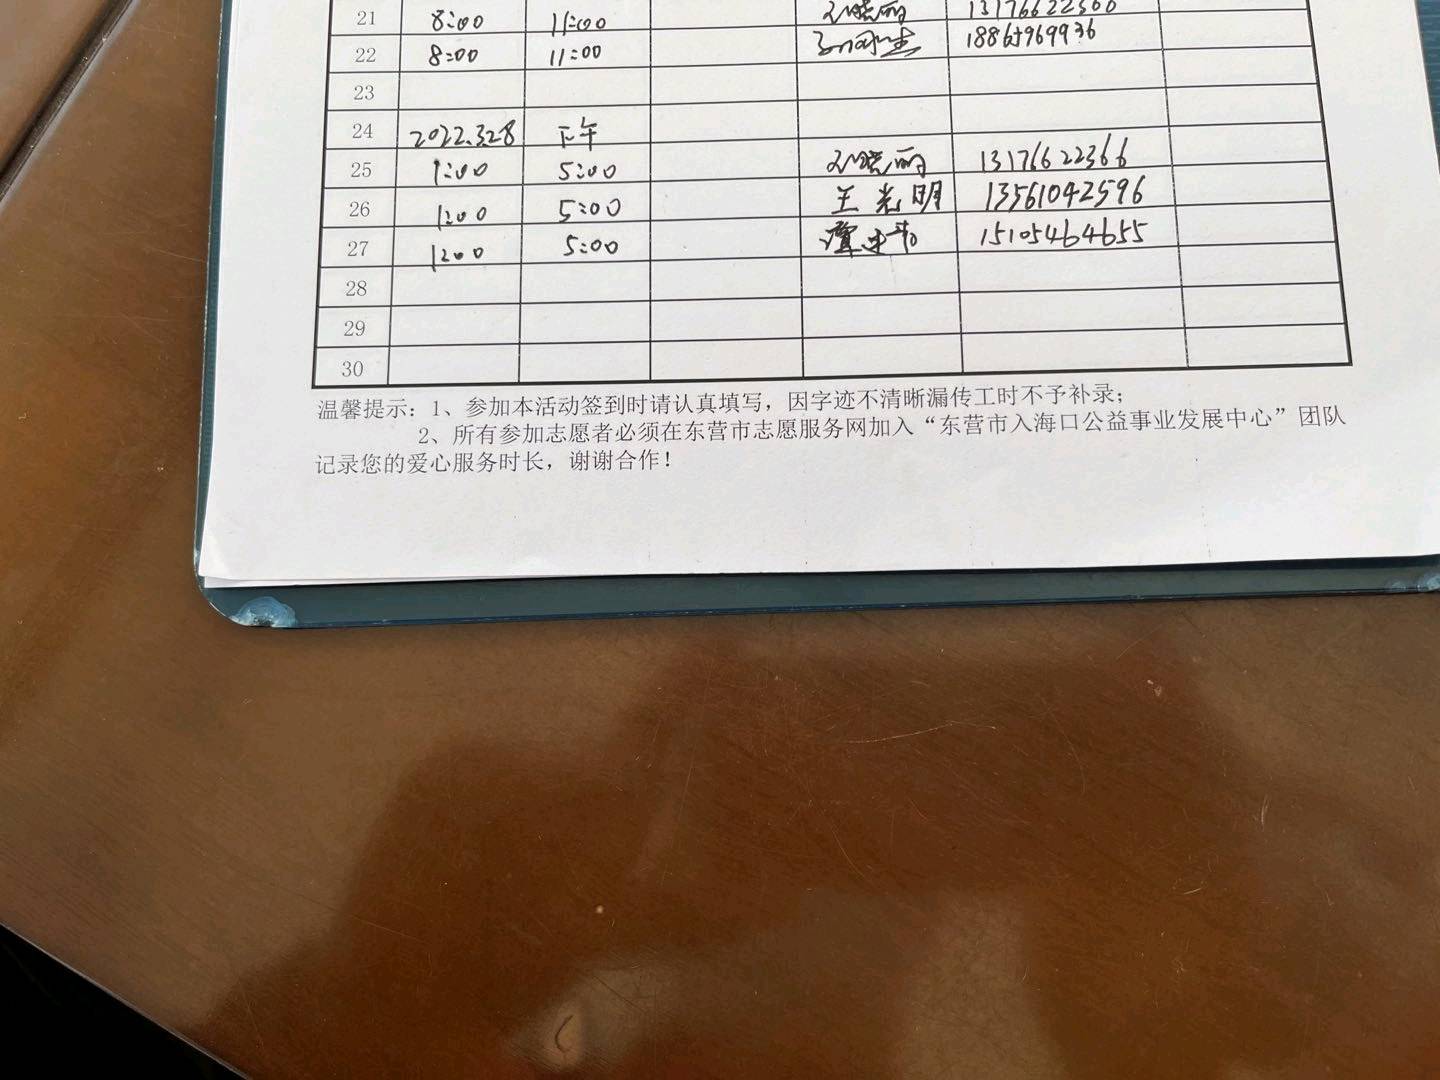 21 8:00 11:00
22 8:00 11:00 18865969936
23
24 2022.3.28 下午
25 1:00 5:00 13176622366
26 1:00 5:00 王光明 13561042596
27 1:00 5:00 15105464655
28
29
30
温馨提示：1、参加本活动签到时请认真填写，因字迹不清晰漏传工时不予补录；
2、所有参加志愿者必须在东营市志愿服务网加入“东营市入海口公益事业发展中心”团队
记录您的爱心服务时长，谢谢合作！